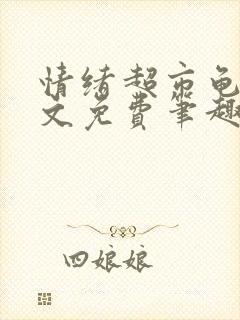 情绪超市龟
文免费笔趣
四娘娘